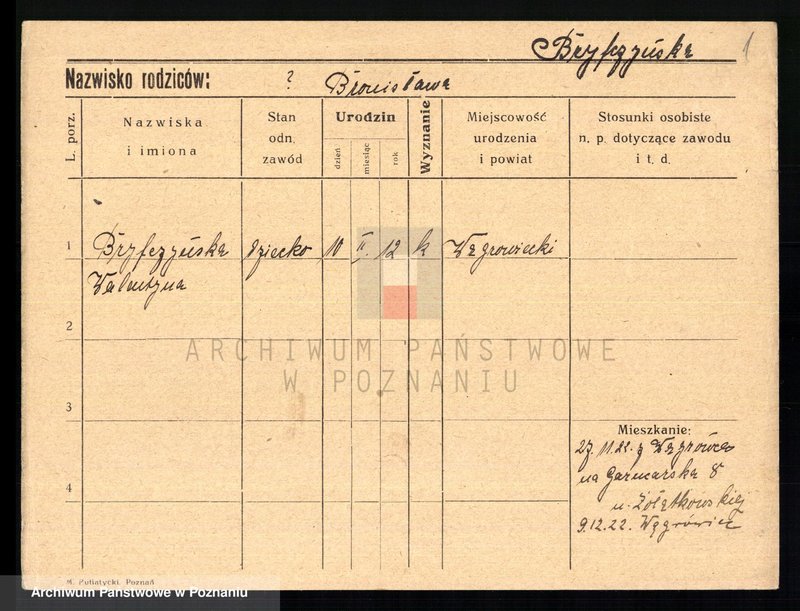 Bryfczyńska 1
Nazwisko rodziców: ? Bronisława
L. porz.
Nazwiska
i imiona
Stan
odn.
zawód
Urodzin
dzień
miesiąc
rok
Wyznanie
Miejscowość
urodzenia
i powiat
Stosunki osobiste
n. p. dotyczące zawodu
i t. d.
1 Bryfczyńska dziecko 10 II. 12 k Wągrowiecki
Walentyna
2
ARCHIWUM PAŃSTWOWE
W POZNANIU
3
Mieszkanie:
27.11.22. z Wągrówca
na Garncarska 8
u. Żołątkowskiej
4
9.12.22. Węgrówiec
M. Putiatycki, Poznań
Archiwum Państwowe w Poznaniu